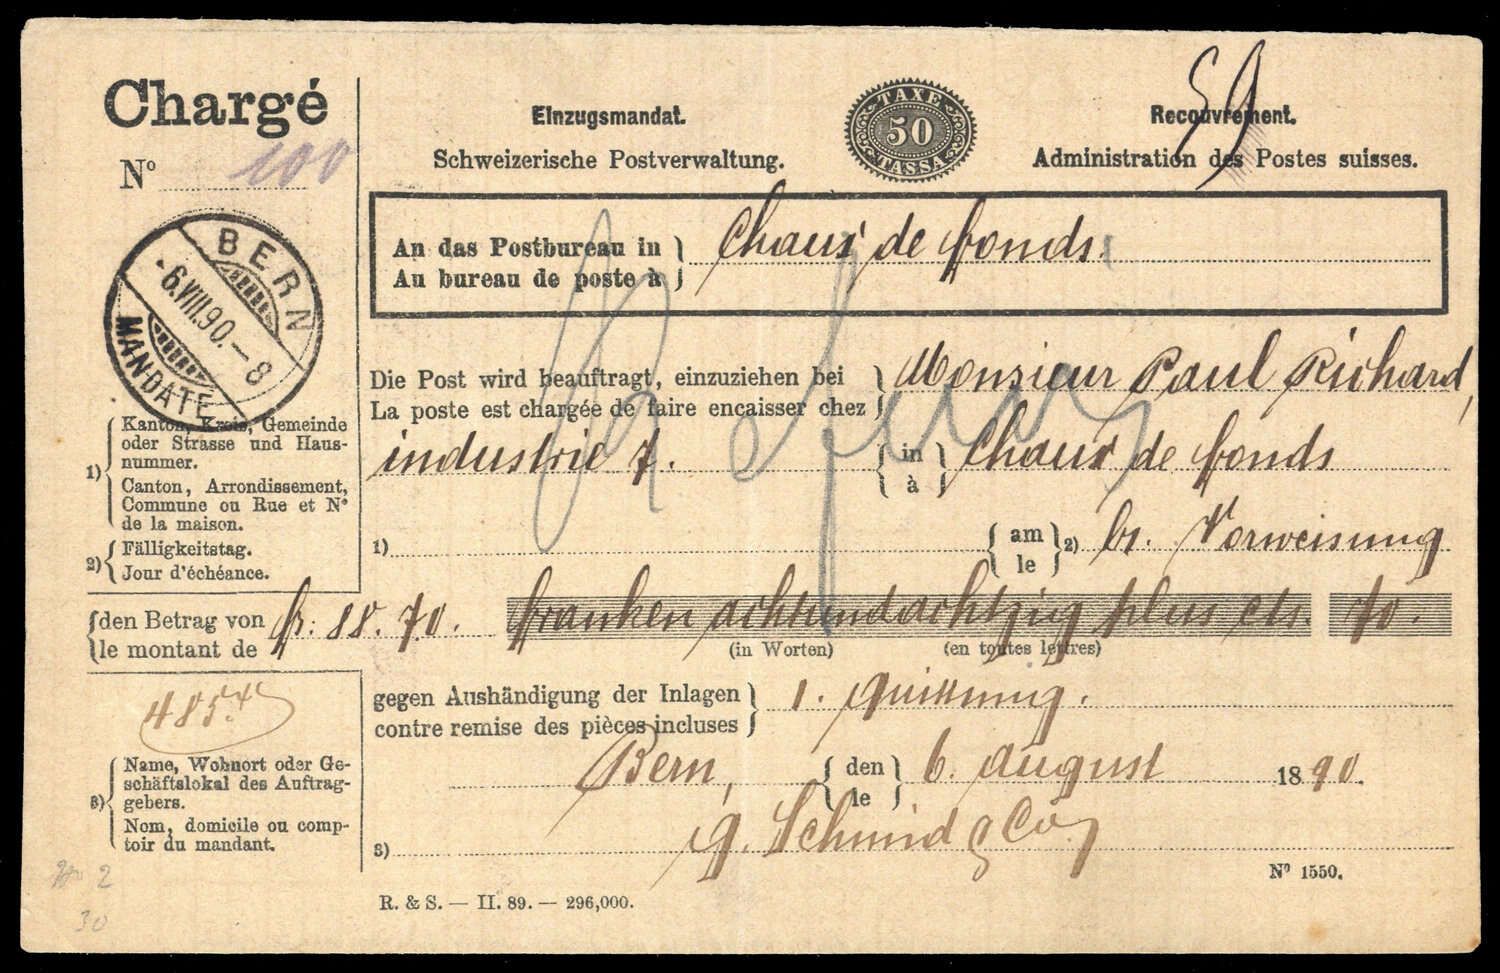 Chargé
Nº 100
Einzugsmandat.
Schweizerische Postverwaltung.
TAXE
50
TASSA
Recouvrement.
Administration des Postes suisses.
59
BERN
-6.VIII.90.-8
MANDATE
An das Postbureau in
Au bureau de poste à
Chaux de fonds.
Refusé
Die Post wird beauftragt, einzuziehen bei
La poste est chargée de faire encaisser chez
Monsieur Paul Richard,
industrie 7.
in
à
Chaux de fonds
1)
am
le
2) Vorweisung
1) Kanton, Kreis, Gemeinde
oder Strasse und Haus-
nummer.
Canton, Arrondissement,
Commune ou Rue et Nº
de la maison.
2) Fälligkeitstag.
Jour d'échéance.
den Betrag von
le montant de
fr: 88. 70.
franken achtundachtzig plus cts. 70.
(in Worten) (en toutes lettres)
485
gegen Aushändigung der Inlagen
contre remise des pièces incluses
1. quittung.
Bern,
den
le
6. august 1890.
3) Name, Wohnort oder Ge-
schäftslokal des Auftrag-
gebers.
Nom, domicile ou comp-
toir du mandant.
3) g. Schmid & Co
Nº 1550.
R. & S. — II. 89. — 296,000.
2
30